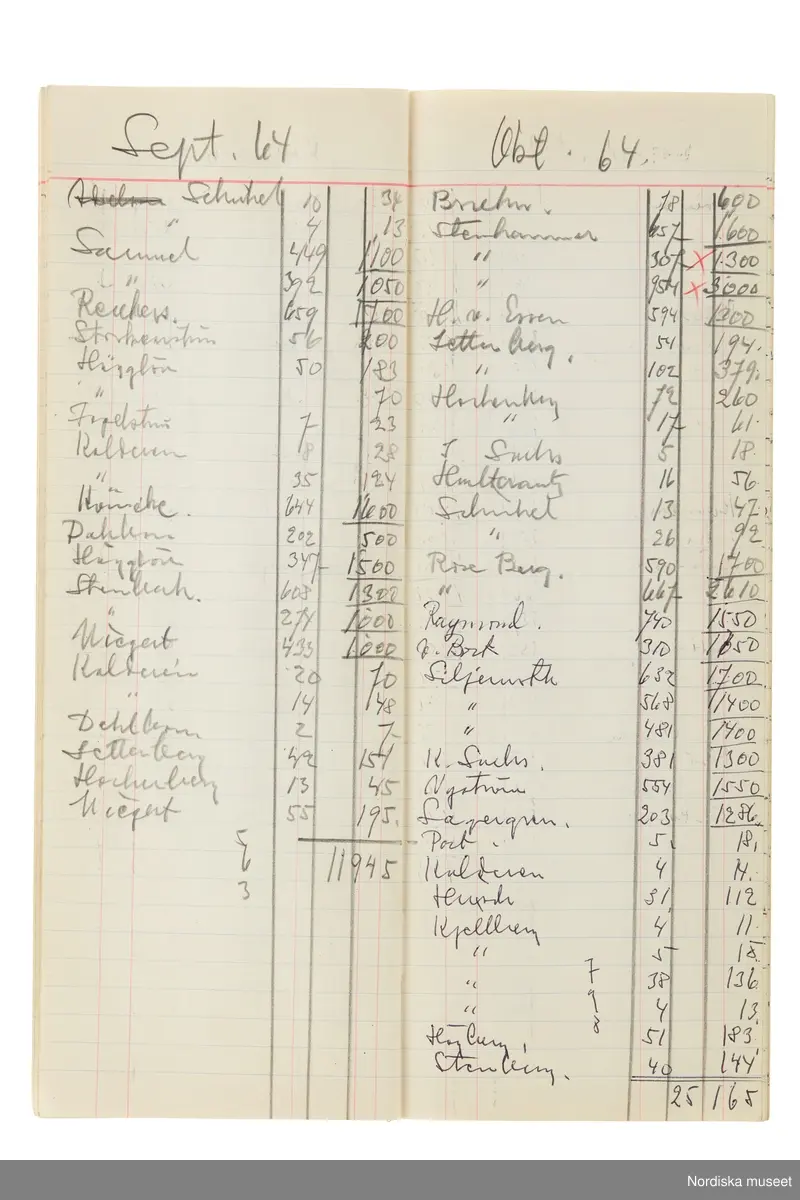 Sept. 64
Schuhel 10 34
" 4 13
Samuel 449 1100
" 392 1050
Reichers. 659 1700
56 200
Hägglöv 50 183
" 70
7 23
Kalderen 8 28
" 35 124
Könicke. 644 1600
Dahlbom 202 500
Hägglöv 347 1500
Stenbeck. 608 1300
" 274 1000
Wiegert 433 1000
Kalderén 20 70
" 14 48
Dahlbom 2 7
Setterberg 42 151
Hachenberg 13 45
Wiegert 55 195.
5
6
3
11945
Okt. 64.
78 600
Stenhammar 657 1600
" 307 x 1300
" 954 x 3000
H. v. Essen 594 1300
Setterberg. 54 194.
" 102 379.
Hachenberg 72 260
" 17 61.
J Sachs 5 18.
Hultcrantz 16 56
Schuhel 13 47.
" 26 92
Rose Berg. 590 1700
" 667 2610
Raymond. 740 1550
v. Bock 310 1650
Siljeruth 632 1700
" 568 1400
" 481 1400
K. Sachs. 381 1300
Nyström 554 1550
Sagergren. 203 1286
Post. 5. 18.
Kalderen 4 14.
Hirsch 31 112
Kjellberg 4 11.
" 5 18.
" 7 38 136
" 9 4 13
8
Högberg. 51 183
Stenberg. 40 144
25 165
Nordiska museet